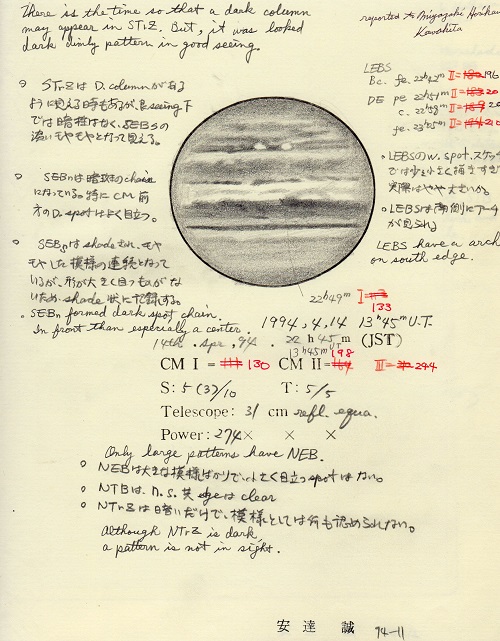 There is the time so that a dark column
may appear in STrZ. But, it was looked
dark dimly pattern in good seeing.
reported to Miyazaki Horikawa
Kawakita
○ STrZは D. columnがある
ように見える時もあるが、良seeing下
では暗柱はなく、SEBsの
濃いモヤモヤとなって見える。
LEBS
Bc. fe. 22h42m II=196
DE pe 22h51m II=20
c. 22h58m II=20
fe. 23h05m II=210
○ LEBSのW. spot. スケッチ
では少し小さく描きすぎ
実際はやや大きい
○ LEBSは南側にアーチ
が見られ
LEBS have a arch
on south edge.
○ SEBnは暗斑のchain
になっている。特にCM前
方のD. spotはよく目立つ。
○ SEBsはshadeされ、モヤ
モヤした模様の連続となって
いるが、形が大きく目立つものがな
いため、shade状に記録する。
22h49m I=
133
SEBn formed dark spot chain.
In front than especially a center.
1994, 4, 14 13h45m U.T.
14th. Apr, 94. 22h45m (JST)
13h45m UT
CM I = 130 CM II = 198 III = 294
S: 5(3)/10 T: 5/5
Telescope: 31 cm refl. equa.
Power: 274× × ×
Only large patterns have NEB.
○ NEBは大きな模様ばかりで、小さく目立つspotはない。
○ NTBは、n.s.共edgeはclear
○ NTrZは暗いだけで、模様としては何も認められない。
Although NTrZ is dark,
a pattern is not in sight.
安達 誠 94-11